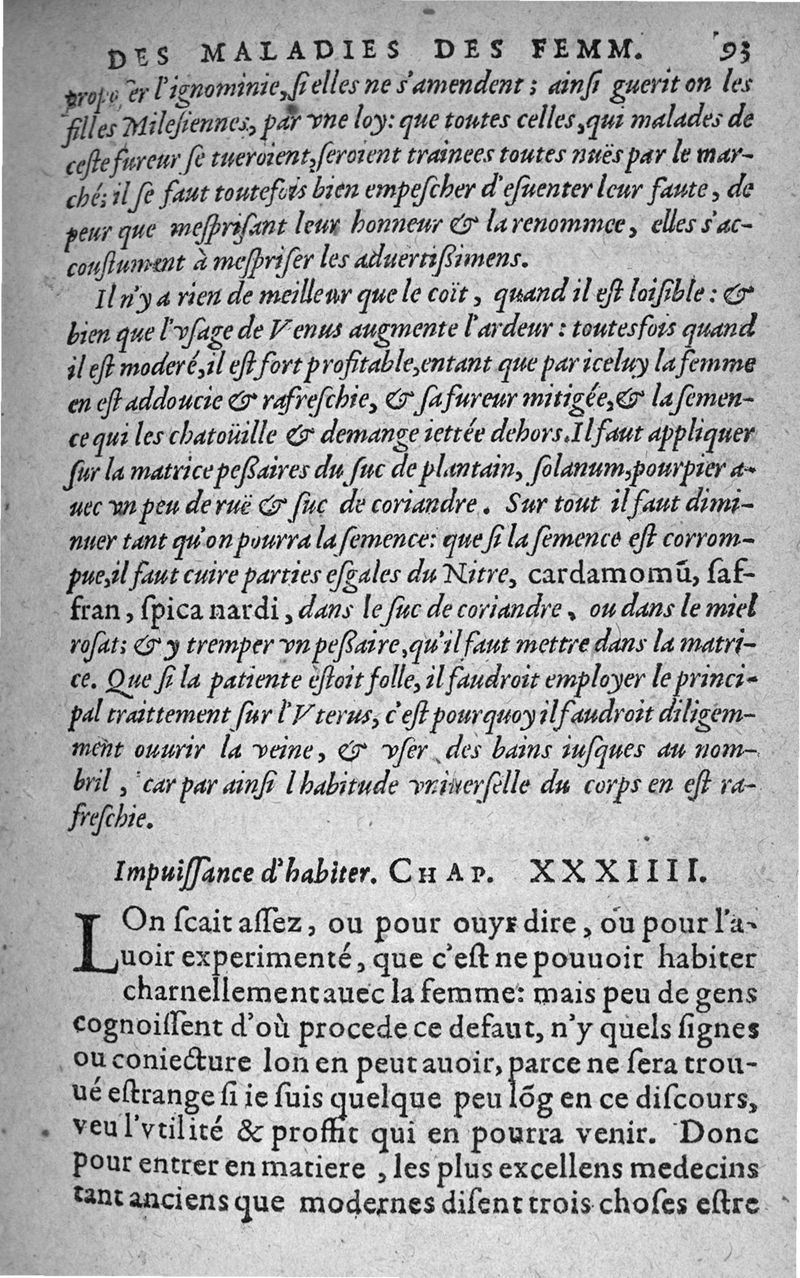 DES MALADIES DES FEMM. 93
propoſer l'ignominie, ſi elles ne s'amendent; ainſi guerit on les
filles Mileſiennes, par vne loy: que toutes celles, qui malades de
ceſte fureur ſe tueroient, ſeroient trainees toutes nuës par le mar-
ché; il ſe faut toutefois bien empeſcher d'eſuenter leur faute, de
peur que meſpriſant leur honneur & la renommee, elles s'ac-
couſtument à meſpriſer les aduertiſſimens.
Il n'y a rien de meilleur que le coït, quand il eſt loiſible: &
bien que l'vſage de Venus augmente l'ardeur: toutesfois quand
il eſt moderé, il eſt fort profitable, entant que par iceluy la femme
en eſt addoucie & rafreſchie, & ſa fureur mitigée, & la ſemen-
ce qui les chatoüille & demange iettée dehors. Il faut appliquer
ſur la matrice peſſaires du ſuc de plantain, ſolanum, pourpier a-
uec vn peu de ruë & ſuc de coriandre. Sur tout il faut dimi-
nuer tant qu'on pourra la ſemence: que ſi la ſemence eſt corrom-
pue, il faut cuire parties eſgales du Nitre, cardamomũ, ſaf-
fran, ſpica nardi, dans le ſuc de coriandre, ou dans le miel
roſat; & y tremper vn peſſaire, qu'il faut mettre dans la matri-
ce. Que ſi la patiente eſtoit folle, il faudroit employer le princi-
pal traittement ſur l'Vterus, c'eſt pourquoy il faudroit diligem-
ment ouurir la veine, & vſer des bains iuſques au nom-
bril, car par ainſi l habitude vniuerſelle du corps en eſt ra-
freſchie.
Impuiſſance d'habiter. CHAP. XXXIIII.
LOn ſcait aſſez, ou pour ouyr dire, ou pour l'a-
uoir experimenté, que c'eſt ne pouuoir habiter
charnellement auec la femme: mais peu de gens
cognoiſſent d'où procede ce defaut, n'y quels ſignes
ou coniecture lon en peut auoir, parce ne ſera trou-
ué eſtrange ſi ie ſuis quelque peu lõg en ce diſcours,
veu l'vtilité & proffit qui en pourra venir. Donc
pour entrer en matiere, les plus excellens medecins
tant anciens que modernes diſent trois choſes eſtre